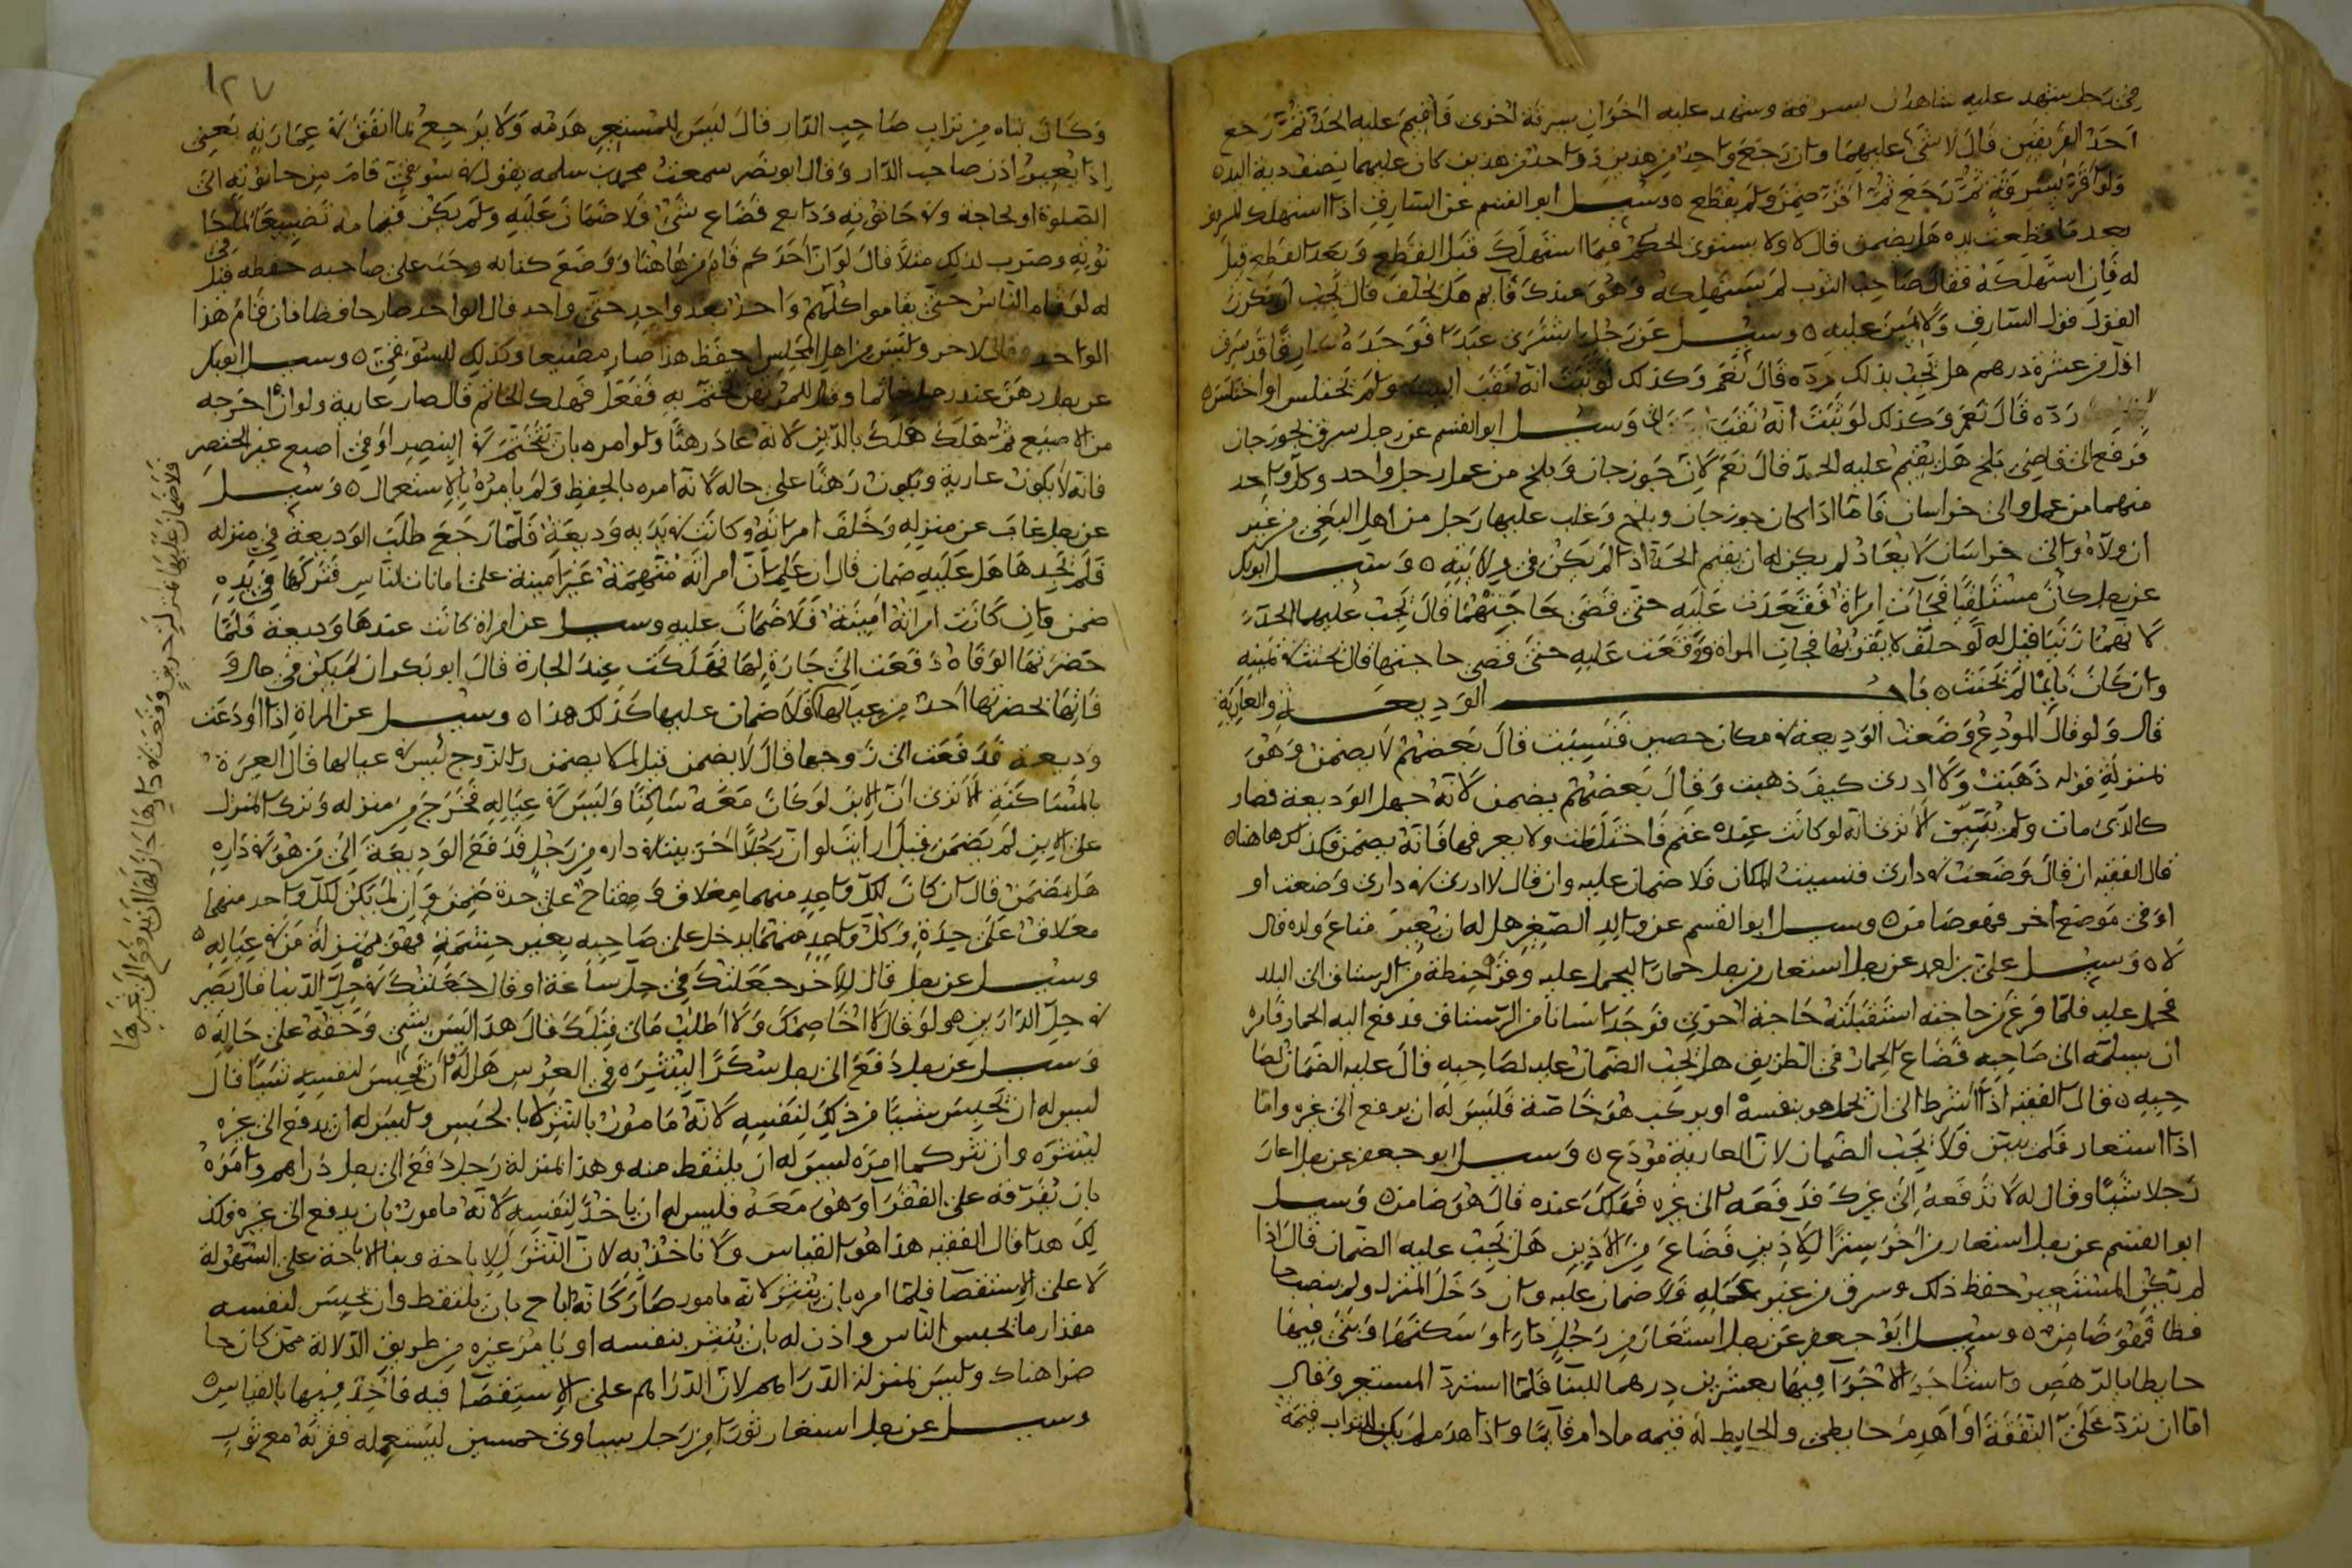 في رجل شهد عليه شاهدان بسرقة وشهد عليه اخوان بسرقة اخرى فاقيم عليه الحد ثم رجع
احد الفريقين قال لا شئ عليهما وان رجع واحد من هذين وواحد من هذين كان عليهما نصف دية اليد ه
ولو اقر بسرقة ثم رجع ثم اقر ضمن ولم يقطع ه وسئل ابو القسم عن السارق اذا استهلك المسروق
بعدما قطعت يده هل يضمن قال لا ولا يستوي الحكم فيما استهلك قبل القطع وبعد القطع قيل
له فان استهلكه فقال صاحب الثوب لم يستهلكه وهو عندك قائم هل يحلف قال يجب ان يكون
القول قول السارق ولا يمين عليه ه وسئل عن رجل اشترى عبدا فوجده سارقا قد سرق
اقل من عشرة درهم هل يجب بذلك رده قال نعم وكذلك لو ثبت انه نقب البيت ولم يختلس او اختلس ه
رده قال نعم وكذلك لو ثبت انه نقب وسئل ابو القسم عن رجل سرق بجوزجان
فرفع الى قاضي بلخ هل يقيم عليه الحد قال نعم لان جوزجان وبلخ من عمل رجل واحد وكل واحد
منهما من عمل والى خراسان فاما اذا كان جوزجان وبلخ وغلب عليها رجل من اهل البغي من غير
ان ولاه والي خراسان لا يعاد لم يكن له ان يقيم الحد اذا لم يكن في ولايته ه وسئل ابو بكر
عن رجل كان مستلقيا فجأت امراة فقعدت عليه حتى قضى حاجتهما قال يجب عليهما الحد
لانهما زنيا قيل له لو حلف لا يقربها فجات المراة ووقعت عليه حتى قضى حاجتها قال يحنث في يمينه
وان كان نائما لم يحنث ه باب الوديعة والعارية
قال ولو قال المودع وضعت الوديعة في مكان حصين فنسيت قال بعضهم لا يضمن وهو
بمنزلة قوله ذهبت ولا ادري كيف ذهبت وقال بعضهم يضمن لانه جهل الوديعة فصار
كالذي مات ولم يبين الا ترى انه لو كانت عنده غنم فاختلطت ولا يعرفها فانه يضمن فكذلك هاهنا ه
قال الفقيه ان قال وضعت في داري فنسيت المكان فلا ضمان عليه وان قال لا ادري في داري وضعت او
او في موضع اخر فهو ضامن ه وسئل ابو القسم عن والد الصغير هل له ان يعير متاع ولده قال
لا ه وسئل علي بن احمد عن رجل استعار من رجل حمارا ليحمل عليه وقر حنطة من الرستاق الى البلد
فحمل عليه فلما فرغ من حاجته استقبلته حاجة اخرى فوجد انسانا من الرستاق فدفع اليه الحمار فامره
ان يسلمه الى صاحبه فضاع الحمار في الطريق هل يجب الضمان عليه لصاحبه قال عليه الضمان لصا
حبه ه قال الفقيه اذا اشرط الى ان يحمل هو بنفسه او يركب هو خاصة فليس له ان يدفع الى غيره واما
اذا استعار فلم يبين فلا يجب الضمان لان العارية مودع ه وسئل ابو جعفر عن رجل اعار
رجلا شيا وقال له لا تدفعه الى غيرك فدفعه الى غيره فهلك عنده قال هو ضامن ه وسئل
ابو القسم عن رجل استعار من اخر سترا للاذين فضاع من الاذين هل يجب عليه الضمان قال اذا
لم يكن المستعير حفظ ذلك وسرق من غير عمله فلا ضمان عليه وان دخل المنزل ولم ينصب حا
فظا فهو ضامن ه وسئل ابو جعفر عن رجل استعار من رجل دارا او سكنها وبنى فيها
حايطا بالرهص واستاجر الاجرا فيها بعشرين درهما للبنا فلما استرد المستعير وقال
اما ان ترد علي النفقة او اهدم حايطي والحايط له قيمة مادام قائما واذا هدم لم يكن للتراب قيمة
١٢٧
وكان بناه من تراب صاحب الدار قال ليس للمستعير هدمه ولا يرجع بما انفق في عمارته يعني
اذا بغير اذن صاحب الدار وقال ابو نصر سمعت محمد بن سلمه يقول في سوقي قام من حانوته الى
الصلوة او لحاجة ولا حانوته ودايع فضاع شئ فلا ضمان عليه ولم يكن قيامه تضييعا لما في حا
نوته وضرب لذلك مثلا قال لو ان احدكم قام من هاهنا ووضع كتابه وجب على صاحبه حفظه قيل
له لو قام الناس حتى يقاموا كلهم واحدا بعد واحد حتى واحد قال الواحد صار حافظا فان قام هذا
الواحد وليس من اهل المجلس احفظ هذا صار مضيعا وكذلك للسوقي ه وسئل ابو بكر
عن رجل رهن عند رجل خاتما وقال للمرتهن تختم به ففعل فهلك الخاتم قال صار عارية ولو ان اخرجه
من الاصبع ثم هلك هلك بالدين لانه عاد رهنا ولو امره بان يتختم في البنصر او في اصبع غير الخنصر
فانه لا يكون عارية ويكون رهنا على حاله لانه امره بالحفظ ولم يامره بالاستعمال ه وسئل
عن رجل غاب عن منزله وخلف امراته وكانت في يديه وديعة فلما رجع طلب الوديعة في منزله
فلم يجدها هل عليه ضمان قال ان علم بان امراته متهمة غير امينة على امانات الناس فتركها في يده
ضمن وان كانت امراته امينة فلا ضمان عليه وسئل عن امراة كانت عندها وديعة فلما
حضرتها الوفاة دفعت الى جارة لها فهلكت عند الجارة قال ابو بكر ان لم يكن في حال و
فاتها بحضرتها احد من عيالها فلا ضمان عليها كذلك هذا ه وسئل عن المراة اذا اودعت
وديعة فدفعت الى زوجها قال لا يضمن قيل لم لا يضمن والزوج ليس في عيالها قال العبرة
بالمساكنة الا ترى ان الابن لو كان معه ساكنا وليس في عياله فخرج من منزله وترك المنزل
على الابن لم يضمن قيل ارايت لو ان رجلا اخر بيتا في داره من رجل فدفع الوديعة الى من هو في داره
هل يضمن قال ان كان لكل واحد منهما مغلاق ومفتاح على حدة ضمن وان لم يكن لكل واحد منهما
مغلاق على حدة وكل واحد منهما يدخل على صاحبه بغير حشمة فهو بمنزلة من في عياله ه
وسئل عن رجل قال لاخر جعلتك في حل ساعة او قال جعلتك في حل الدنيا قال يصير
في حل الدارين هو لو قال لا اخاصمك ولا اطلب مالي قبلك قال هذا ليس بشئ وحقه على حاله ه
وسئل عن رجل دفع الى رجل سكرا لينثره في العرس هل له ان يحبس لنفسه شيا قال
ليس له ان يحبس شيا من ذلك لنفسه لانه مامور بالنثر لا بالحبس وليس له ان يدفع الى غيره
لينثره وان نثر كما امره ليس له ان يلتقط منه وهذا بمنزلة رجل دفع الى رجل دراهم وامره
بان يفرقه على الفقرا وهو معه فليس له ان ياخذ لنفسه لانه مامور بان يدفع الى غيره فكذ
لك هذا قال الفقيه هذا هو القياس ولا ناخذ به لان النثر للاباحة وبنا الاباحة على السهولة
لا على الاستقصا فلما امره بان ينثر لانه مامور صار كانه اباح بان يلتقط وان يحبس لنفسه
مقدار ما يحبس الناس واذن له بان ينثر بنفسه او يامر غيره من طريق الدلالة ممن كان حا
ضرا هناك وليس بمنزلة الدراهم لان الدراهم على الاستقصا فيه فاخذ فيها بالقياس ه
وسئل عن رجل استعار ثورا من رجل يساوي خمسين ليستعمله فقرنه مع ثور
فلا ضمان عليها بمنزلة حريق وقعت في دارها جاز لها ان تدفع الى غيرها